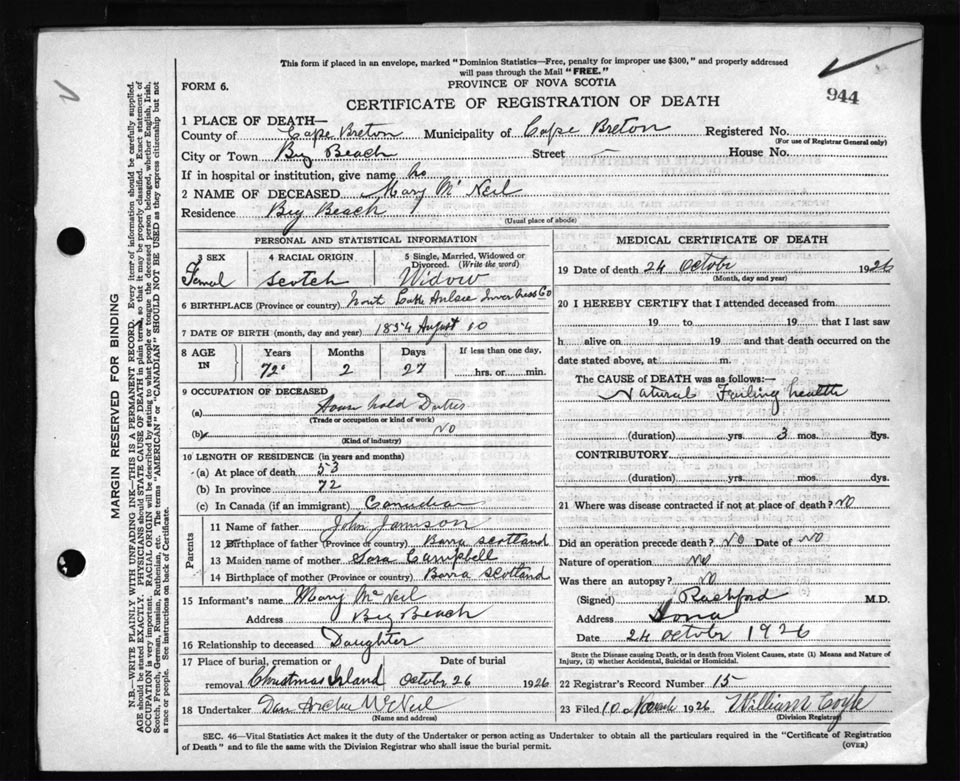 This form if placed in an envelope, marked "Dominion Statistics—Free, penalty for improper use $300," and properly addressed
will pass through the Mail "FREE."
FORM 6.
PROVINCE OF NOVA SCOTIA
944
CERTIFICATE OF REGISTRATION OF DEATH
1 PLACE OF DEATH—
County of Cape Breton Municipality of Cape Breton Registered No.
(For use of Registrar General only)
City or Town Big Beach Street — House No.
If in hospital or institution, give name no
2 NAME OF DECEASED Mary McNeil
Residence Big Beach
(Usual place of abode)
PERSONAL AND STATISTICAL INFORMATION
3 SEX 4 RACIAL ORIGIN 5 Single, Married, Widowed or Divorced. (Write the word)
Femal scotch Widow
6 BIRTHPLACE (Province or country) Inverness Co
7 DATE OF BIRTH (month, day and year) 1854 August
8 AGE IN Years Months Days If less than one day,
72 2 27 hrs. or min.
9 OCCUPATION OF DECEASED
(a) House hold Duties
(Trade or occupation or kind of work)
(b) No
(Kind of industry)
10 LENGTH OF RESIDENCE (in years and months)
(a) At place of death 53
(b) In province 72
(c) In Canada (if an immigrant) Canadian
Parents
11 Name of father John Jamison
12 Birthplace of father (Province or country) Barra scotland
13 Maiden name of mother Sara Campbell
14 Birthplace of mother (Province or country) Barra scotland
15 Informant's name Mary McNeil
Address Big Beach
16 Relationship to deceased Daughter
17 Place of burial, cremation or Date of burial
removal Christmas Island Octobr 26 1926
18 Undertaker Dan Archie McNeil
(Name and address)
MEDICAL CERTIFICATE OF DEATH
19 Date of death 24 Octobr 1926
(Month, day and year)
20 I HEREBY CERTIFY that I attended deceased from
19 to 19 that I last saw
h alive on 19 and that death occurred on the
date stated above, at m.
The CAUSE of DEATH was as follows:—
Natural Failing health
(duration) yrs. 3 mos. dys.
CONTRIBUTORY
(duration) yrs. mos. dys.
21 Where was disease contracted if not at place of death? No
Did an operation precede death? No Date of No
Nature of operation No
Was there an autopsy? No
(Signed) M.D.
Address Iona
Date 24 Octobr 1926
State the Disease causing Death, or in death from Violent Causes, state (1) Means and Nature of
Injury, (2) whether Accidental, Suicidal or Homicidal.
22 Registrar's Record Number 15
23 Filed 10 1926 William Coyle
(Division Registrar)
SEC. 46—Vital Statistics Act makes it the duty of the Undertaker or person acting as Undertaker to obtain all the particulars required in the "Certificate of Registration
of Death" and to file the same with the Division Registrar who shall issue the burial permit.
(OVER)
MARGIN RESERVED FOR BINDING
N.B.—WRITE PLAINLY WITH UNFADING INK—THIS IS A PERMANENT RECORD. Every item of information should be carefully supplied.
AGE should be stated EXACTLY. PHYSICIANS should STATE CAUSE OF DEATH in plain terms, so that it may be properly classified. Exact statement of
OCCUPATION is very important. RACIAL ORIGIN will be described by stating to what people or tongue the deceased person belonged, whether English, Irish,
Scotch, French, German, Russian, Ruthenian, etc. The terms "AMERICAN" or "CANADIAN" SHOULD NOT BE USED as they express citizenship but not
a race or people. See instructions on back of Certificate.